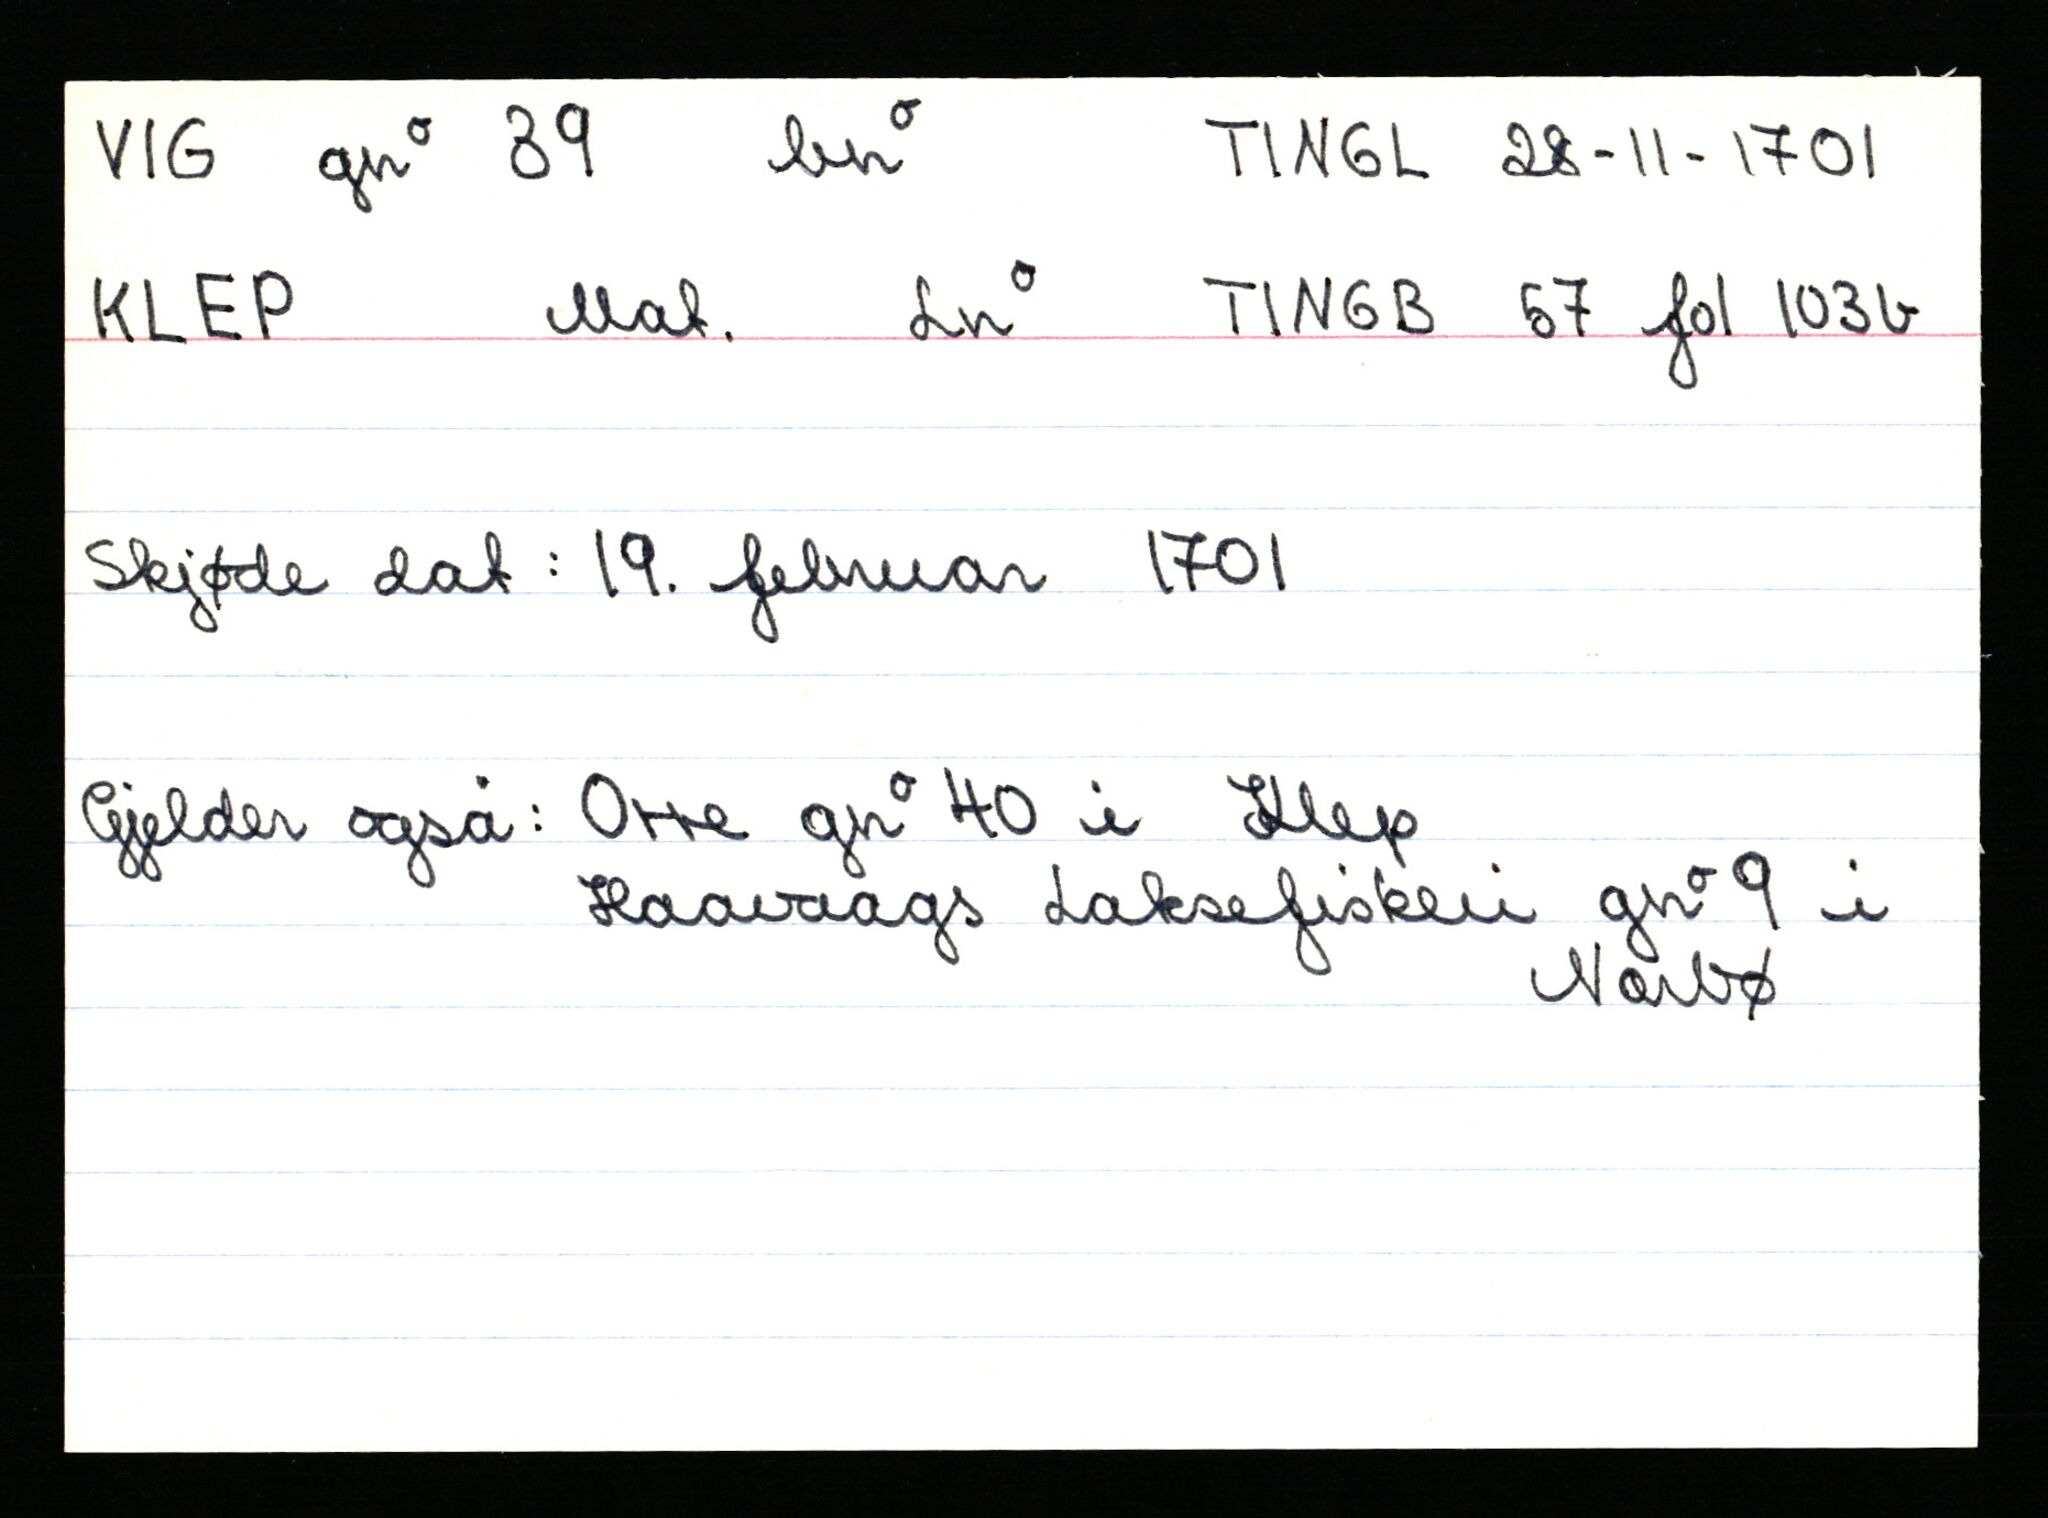 VIG gn° 39 bn° TINGL 28-11-1701
KLEP Mat. Ln° TINGB 57 fol 103b
Skjøde dat: 19. februar 1701
Gjelder også: Orre gn° 40 i Klep
Haavaags Laksefiskeri gn° 9 i
Narbø